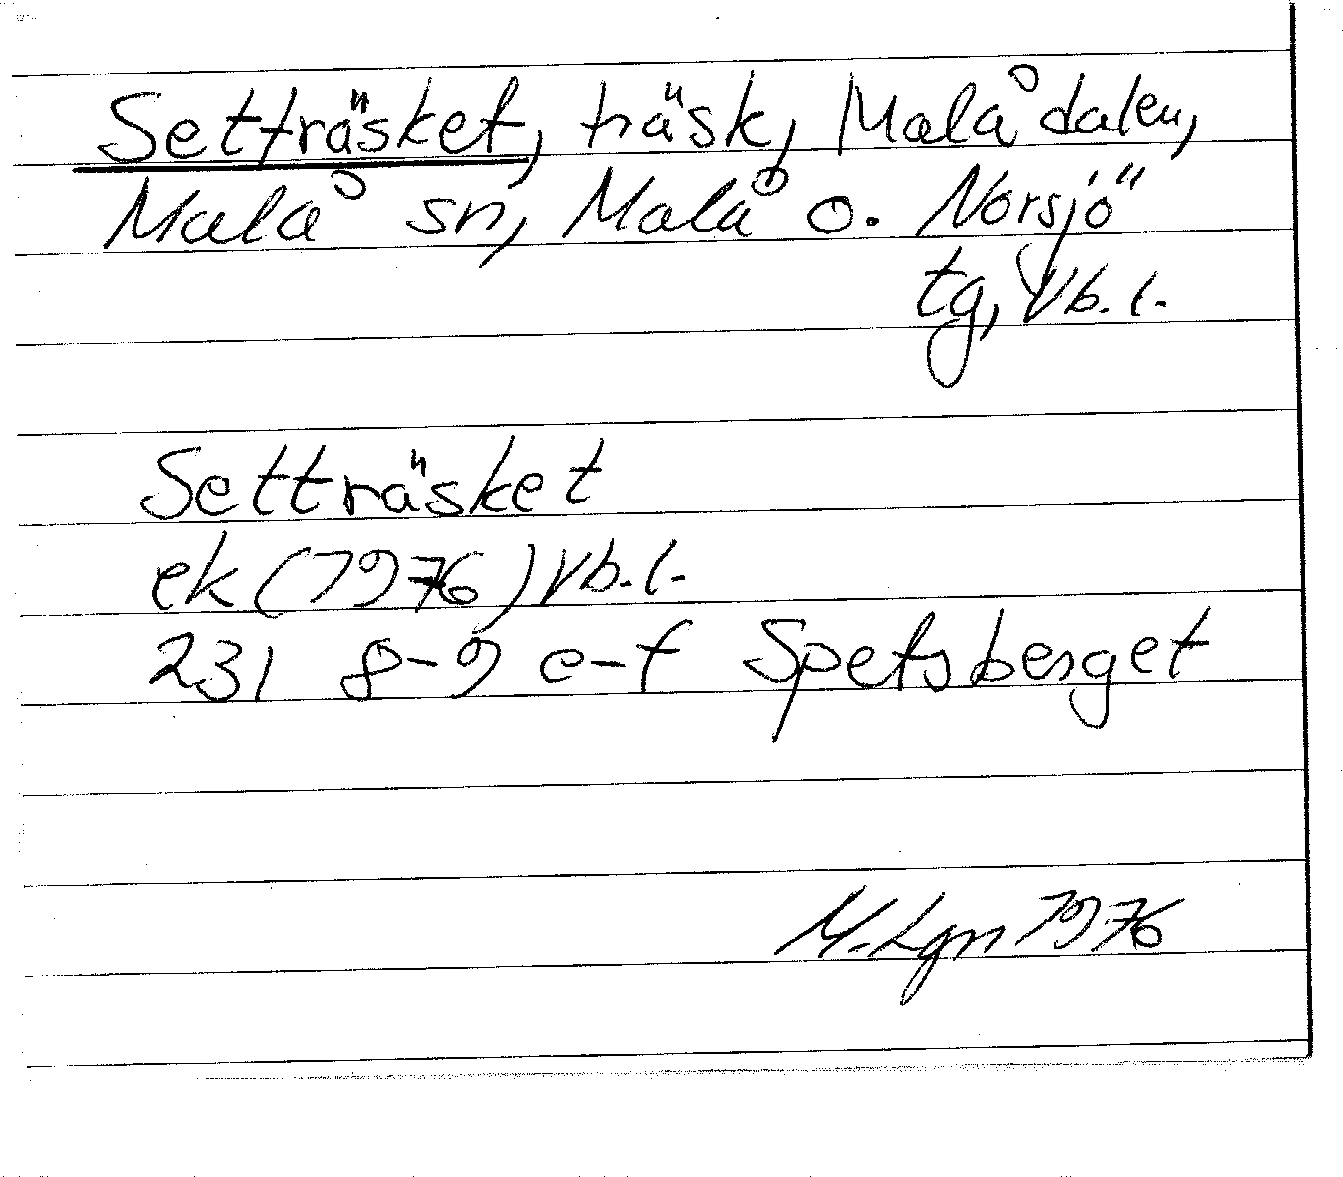 Setträsket, träsk, Malådalen,
Malå sn, Malå o. Norsjö
tg, Vb. l.
Setträsket
ek (1976) Vb. l.
231 8-9 e-f Spetsberget
M. Lgn 1976